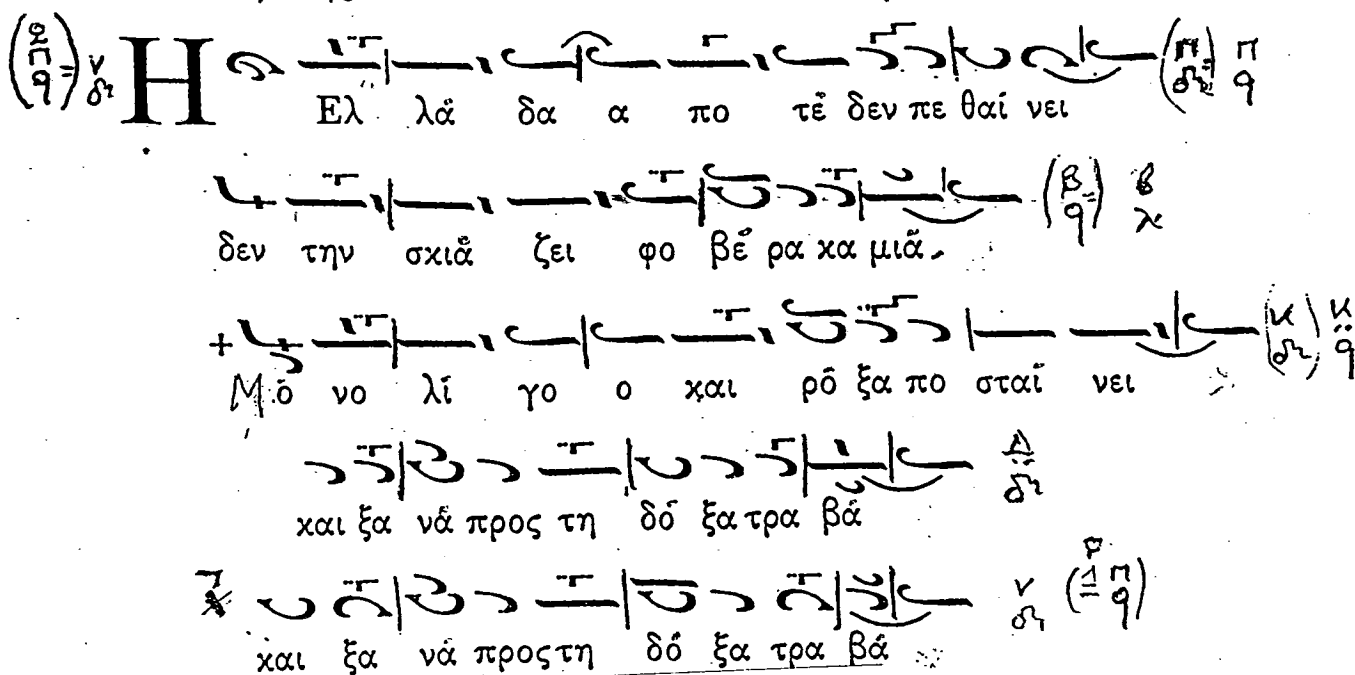 Η Ελ λά δα α πο τέ δεν πε θαί νει
δεν την σκιά ζει φο βέ ρα κα μιά.
Μό νο λί γο ο και ρό ξα πο σταί νει
και ξα νά προς τη δό ξα τρα βά
και ξα νά προς τη δό ξα τρα βά